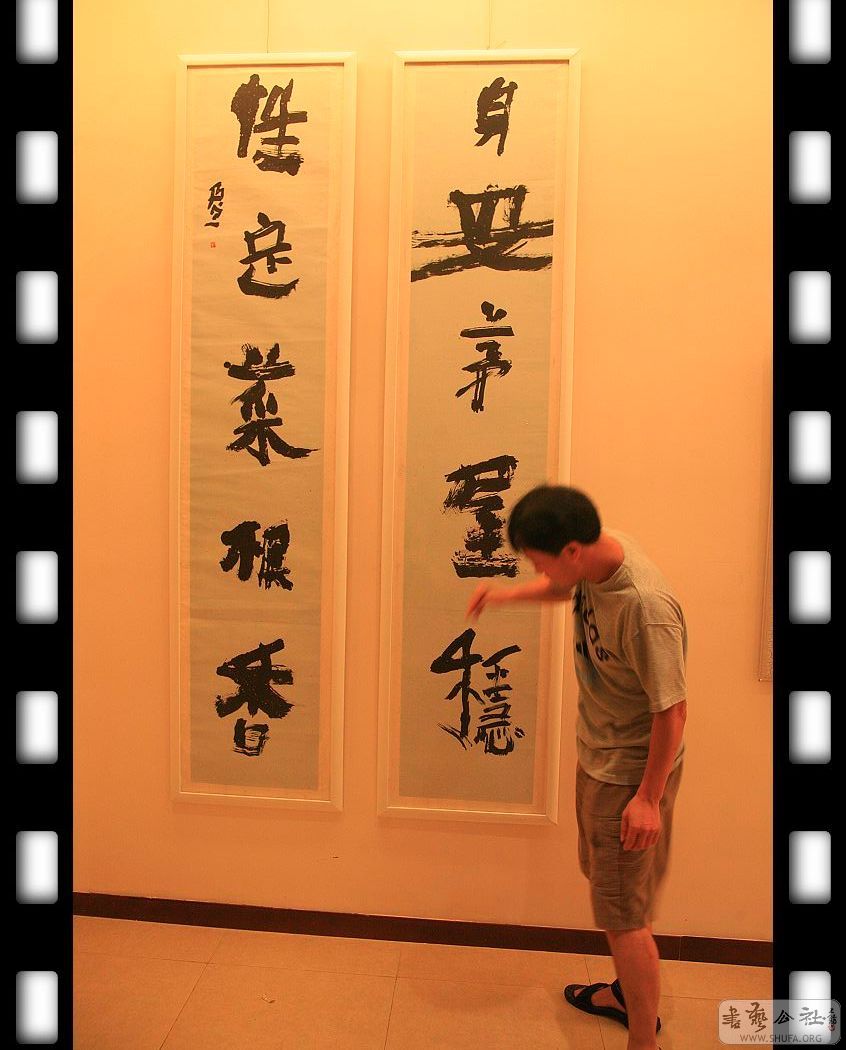 身安茅屋穩
性定菜根香
書藝公社
WWW.SHUFA.ORG